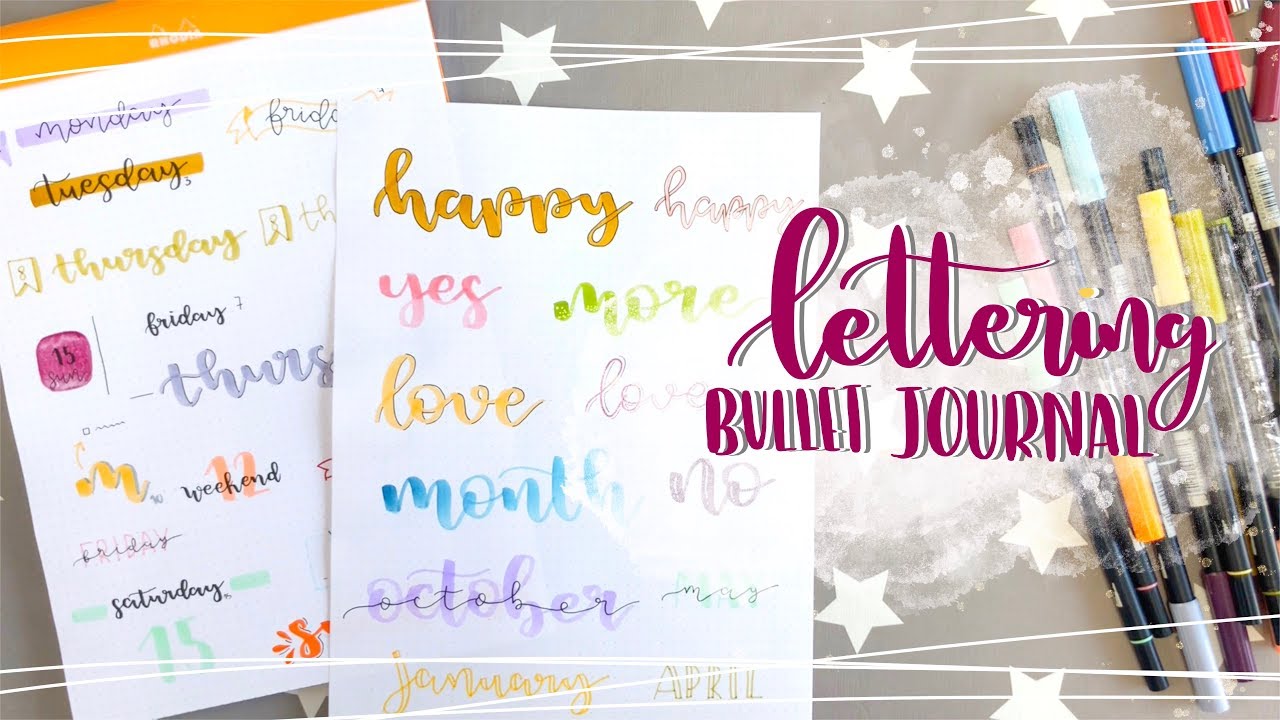 RHODIA
monday
friday
tuesday 3
8 thursday
8 thu
friday 7
15
sun
thurs
m 10
12
weekend
FRIDAY
friday
saturday 15
15
happy happy
yes more
love love
month no
october may
MAY
january APRIL
lettering
BULLET JOURNAL